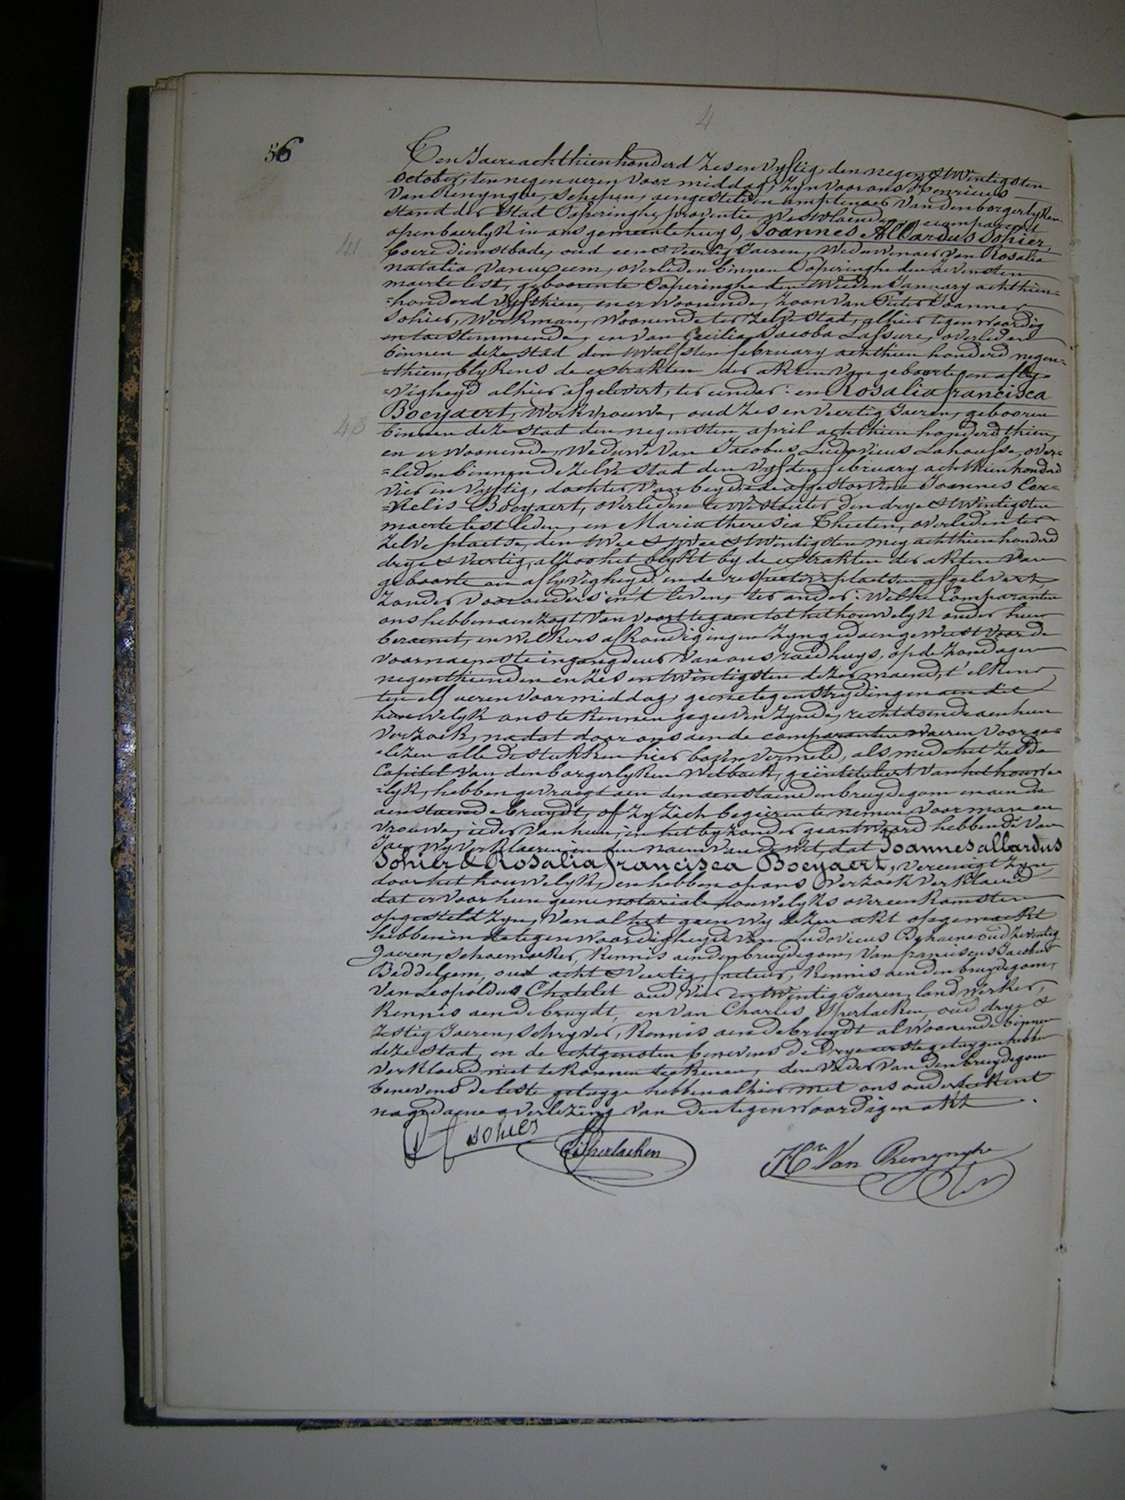 4
86
Den Jaere achthien honderd zes en vyftig, den negen & twintigsten
october, ten negen ueren voor middag, zyn voor ons Henricus
Van Renynghe, Schepen, aengestelden amptenaer van den borgerlyken
stand der Stad Poperinghe, provintie Westvlaenderen, gecompareert
openbaerlyk in ons gemeentehuys, Joannes Allardus Sohier,
41
boere dienstbode, oud een & veertig Jaeren, Weduwenaer van Rosalia
natalia Vanuxeem, overleden binnen Poperinghe den zevensten
maerte lest, geboren te Poperinghe den tweeden January achthien-
=honderd vyfthien, en er Woonende, Zoon van Pieter Joannes
Sohier, Werkman, Woonende ter zelve Stad, alhier tegenwoordig
en toestemmende, en van Cecilia Jacoba Lassure, overleden
binnen deze stad den twalfsten february achthien honderd negen-
=thien, blykens de extrakten der akten van geboorte en afly-
=vigheyd alhier afgelevert, ter eender: en Rosalia francisca
Boeyaert, Werkvrouwe, oud zes en veertig Jaeren, geboren
43
binnen deze stad den negensten april achthien honderd thien,
en er woonende, Weduwe van Jacobus Ludovicus Lahousse, over-
=leden binnen de zelve stad den vyfden february achthien honderd
vier en vyftig, dochter van beyde de afgestorvene Joannes Cor-
=nelis Boeyaert, overleden te Westouter den drye & twintigsten
maerte lest leden, en Maria theresia Theeten, overleden ter
zelve plaetse, den twee & twintigsten mey achthien honderd
drye & veertig, alzoo het blykt by de extrakten der akten van
geboorte en aflyvigheyd in de respective plaetsen afgelevert,
zonder voorouders in't leven, ter ander: welke Comparanten
ons hebben aenzogt van voort te gaen tot het houwelyk onder hun
beraemt, en welkers afkondigingen zyn gedaen geweest voor de
voornaemste ingangdeur van ons raedhuys, op de zondagen
negenthienden en zes en twintigsten dezer maend, t'elkens
ten elf ueren voor middag, geene tegenstrydingen aen dit
houwelyk ons te kennen gegeven zynde, rechtdoende aen hun
verzoek, nadat door ons aen de comparanten waeren voorge-
=lezen alle de stukken hier boven vermeld, als mede het zesde
Capittel van den borgerlyken Wetboek, geïntituleert van het houwe-
=lyk, hebben gevraegt aen den aenstaenden bruydegom en aen de
aenstaende bruydt, of zy zich begeiren te nemen voor man en
vrouwe, ieder van hun, in het byzonder geantwoord hebbende van
Jae, wy verklaeren in den naem van de wet, dat Joannes allardus
Sohier & Rosalia francisca Boeyaert, vereenigt zyn
door het houwelyk, en hebben op ons verzoek verklaerd
dat er voor hun geene notariale houwelyks overeenkomsten
opgesteld zyn, van al het geen wy dezen akt opgemaekt
hebben in de tegenwoordigheyd van Ludovicus Ryhaene oud zeventig
Jaeren, schoenmaker, kennis aen den bruydegom, van franciscus Jacobus
Beddelgem, oud acht & veertig, facteur, kennis aen den bruydegom,
van Leopoldus Chatelet oud vier en twintig Jaeren, land werker,
kennis aen de bruydt, en van Charles Sperlaeken, oud drye &
zestig Jaeren, schryver, kennis aen de bruydt al woonende binnen
deze stad, en de echtgenoten benevens de drye eerste getuygen hebben
verklaerd niet te konnen teekenen, den vader van den bruydegom
benevens de leste getuyge hebben alhier met ons onderteekent
na gedaene overlezing van den tegenwoordigen akt.
P J Sohier
C Sperlaeken
Hri Van Renynghe